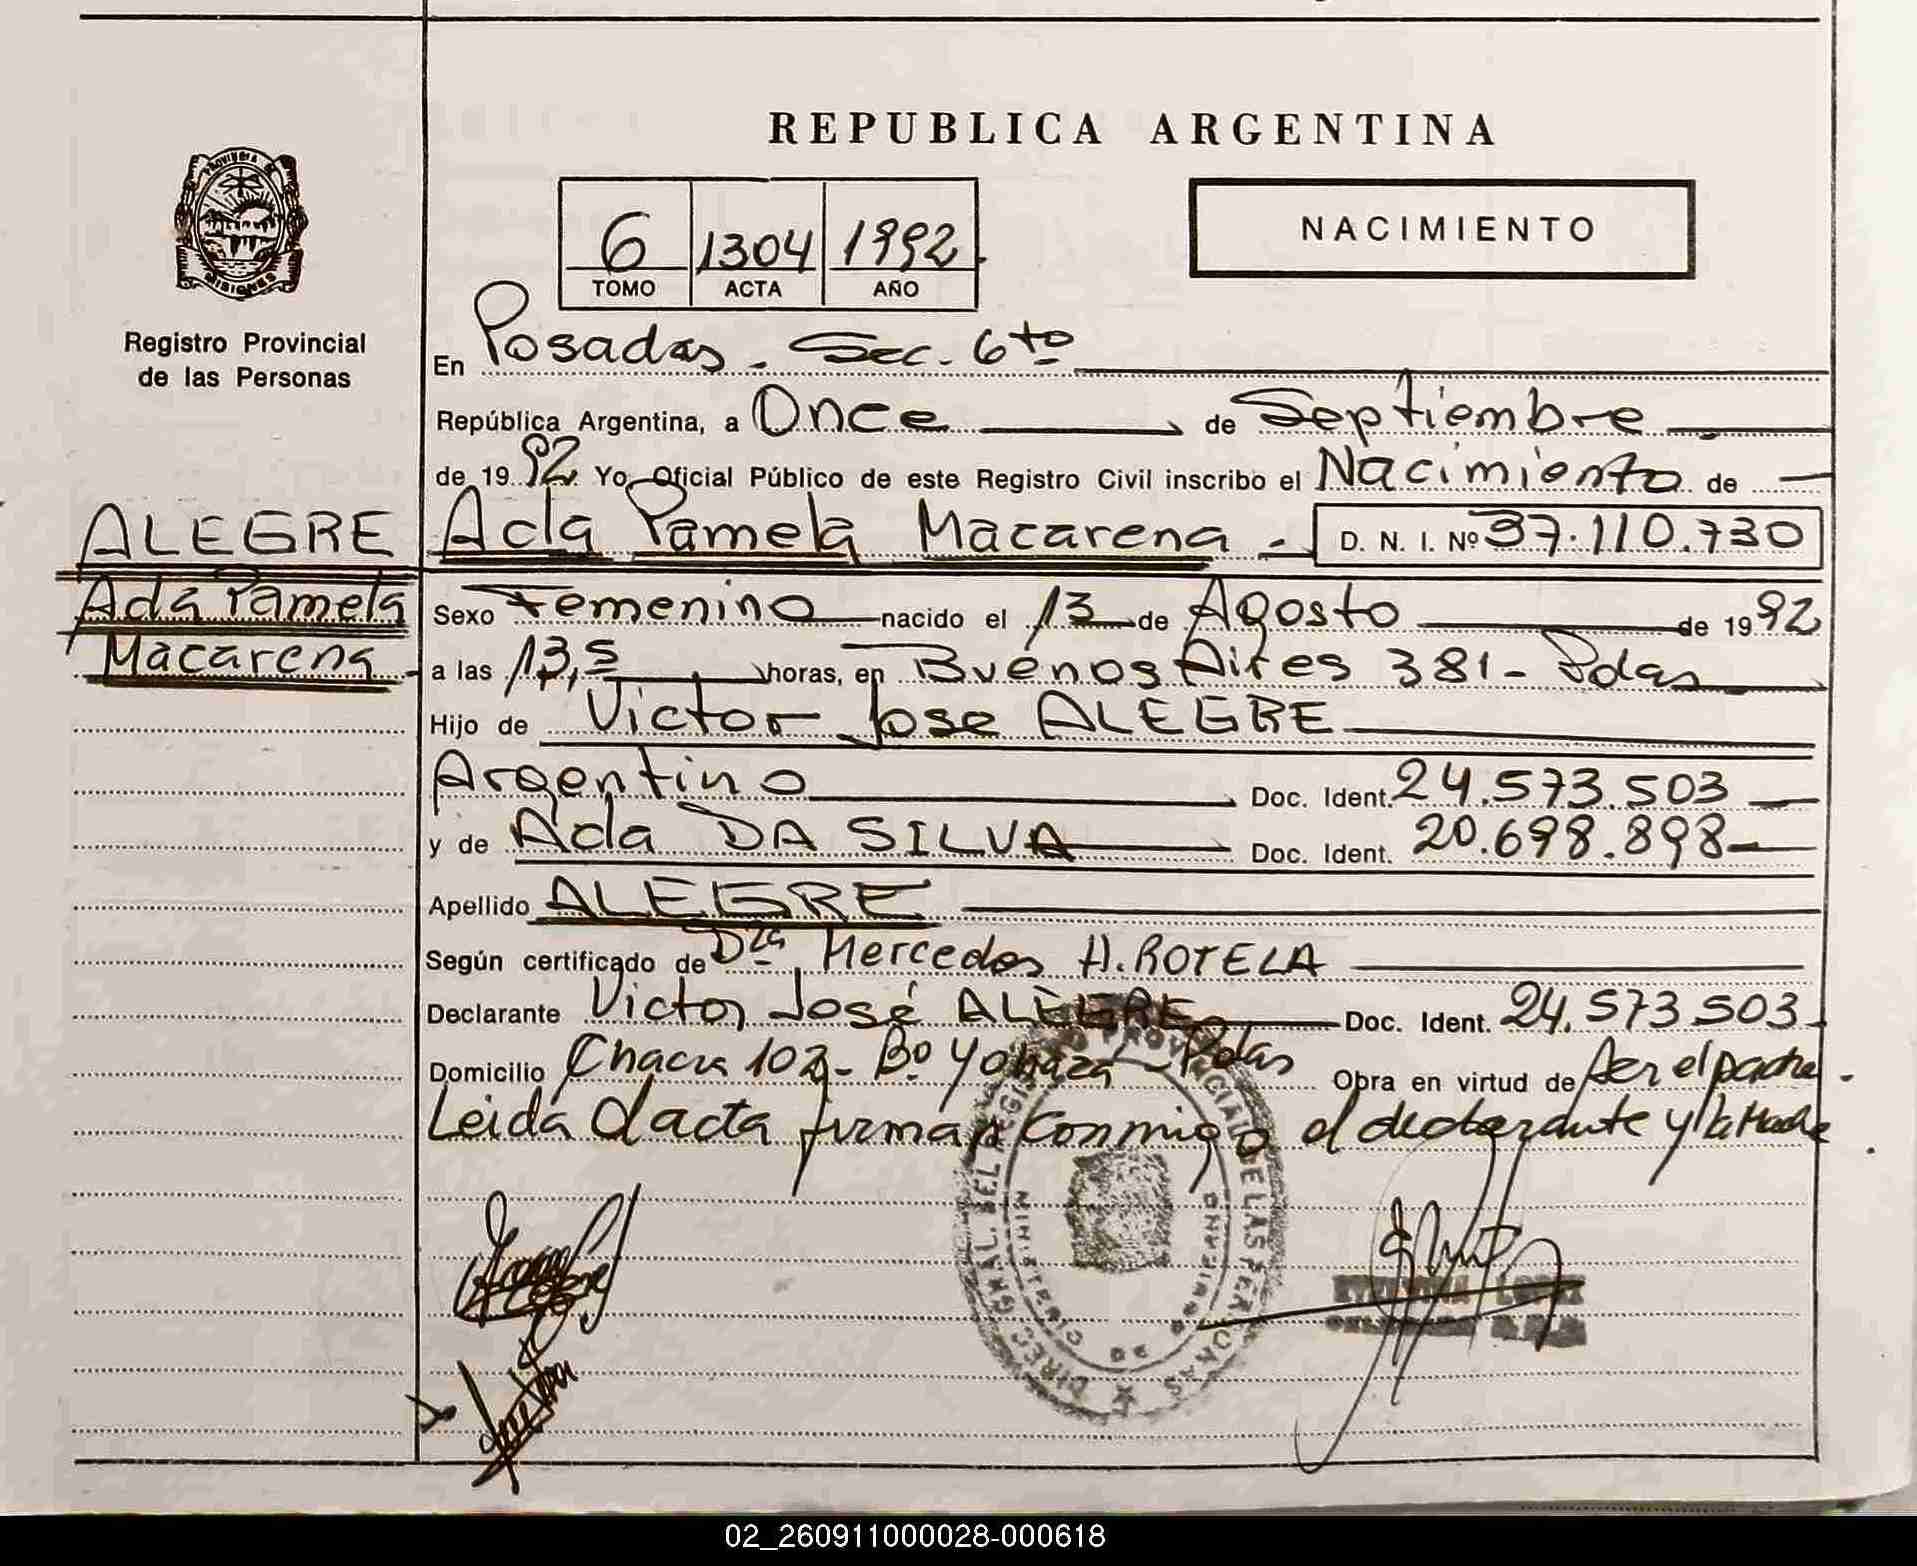 REPUBLICA ARGENTINA
PROVINCIA DE
MISIONES
Registro Provincial
de las Personas
6 1304 1992
TOMO ACTA AÑO
NACIMIENTO
En Posadas - Sec. 6to
República Argentina, a Once de Septiembre
de 1992 Yo, Oficial Público de este Registro Civil inscribo el Nacimiento de
ALEGRE
Ada Pamela
Macarena
Ada Pamela Macarena - D. N. I. Nº 37.110.730
Sexo Femenino nacido el 13 de Agosto de 1992
a las 13,5 horas, en Buenos Aires 381 - Pdas
Hijo de Victor Jose ALEGRE
Argentino Doc. Ident. 24.573.503
y de Ada DA SILVA Doc. Ident. 20.698.898
Apellido ALEGRE
Según certificado de Dra Mercedes H. ROTELA
Declarante Victor José ALEGRE Doc. Ident. 24.573503
Domicilio Chacra 102 - Bº Yohasá - Pdas Obra en virtud de ser el padre.
Leida el acta firman conmigo el declarante y la Madre.
DIREC. GRAL. DEL REGISTRO PROVINCIAL DE LAS PERSONAS
MINISTERIO DE GOBIERNO
LOPEZ
02_260911000028-000618